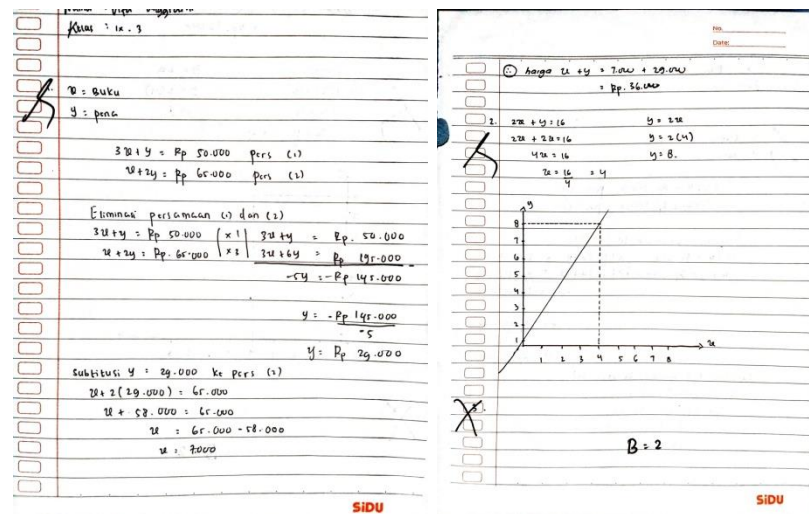 Kelas : ix . 3
x = Buku
y = pena
3x + y = Rp 50.000 pers (1)
x + 2y = Rp 65.000 pers (2)
Eliminasi persamaan (1) dan (2)
3x + y = Rp 50.000 | x 1 | 3x + y = Rp. 50.000
x + 2y = Rp. 65.000 | x 3 | 3x + 6y = Rp 195.000
-5y = -Rp 145.000
y = -Rp 145.000
-5
y = Rp 29.000
Substitusi y = 29.000 ke pers (2)
x + 2(29.000) = 65.000
x + 58.000 = 65.000
x = 65.000 - 58.000
x = 7.000
SiDU
No.
Date:
∴ harga x + y = 7.000 + 29.000
= Rp. 36.000
2. 2x + y = 16 y = 2x
2x + 2x = 16 y = 2(4)
4x = 16 y = 8.
x = 16/4 = 4
y
8
7
6
5
4
3
2
1
1 2 3 4 5 6 7 8 x
3.
B = 2
SiDU